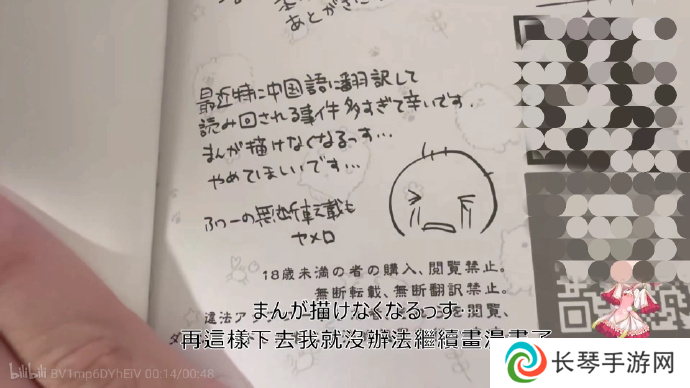 あとがきに
最近特に中国語に翻訳して
読み回される事件多すぎて辛いです.
まんが描けなくなるっす…
やめてほしいです…
ふつーの無断転載も
ヤメロ
18歳未満の者の購入、閲覧禁止。
無断転載、無断翻訳禁止。
違法ア
を閲覧、
まんが描けなくなるっす…
再這樣下去我就沒辦法繼續畫漫畫了
bilibili BV1mp6DYhEiV 00:14/00:48
长琴手游网